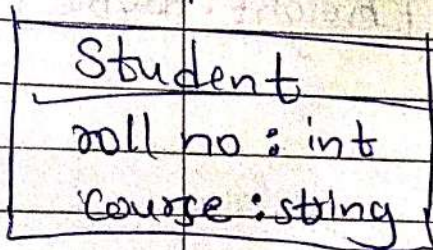 Student
roll no : int
course : string